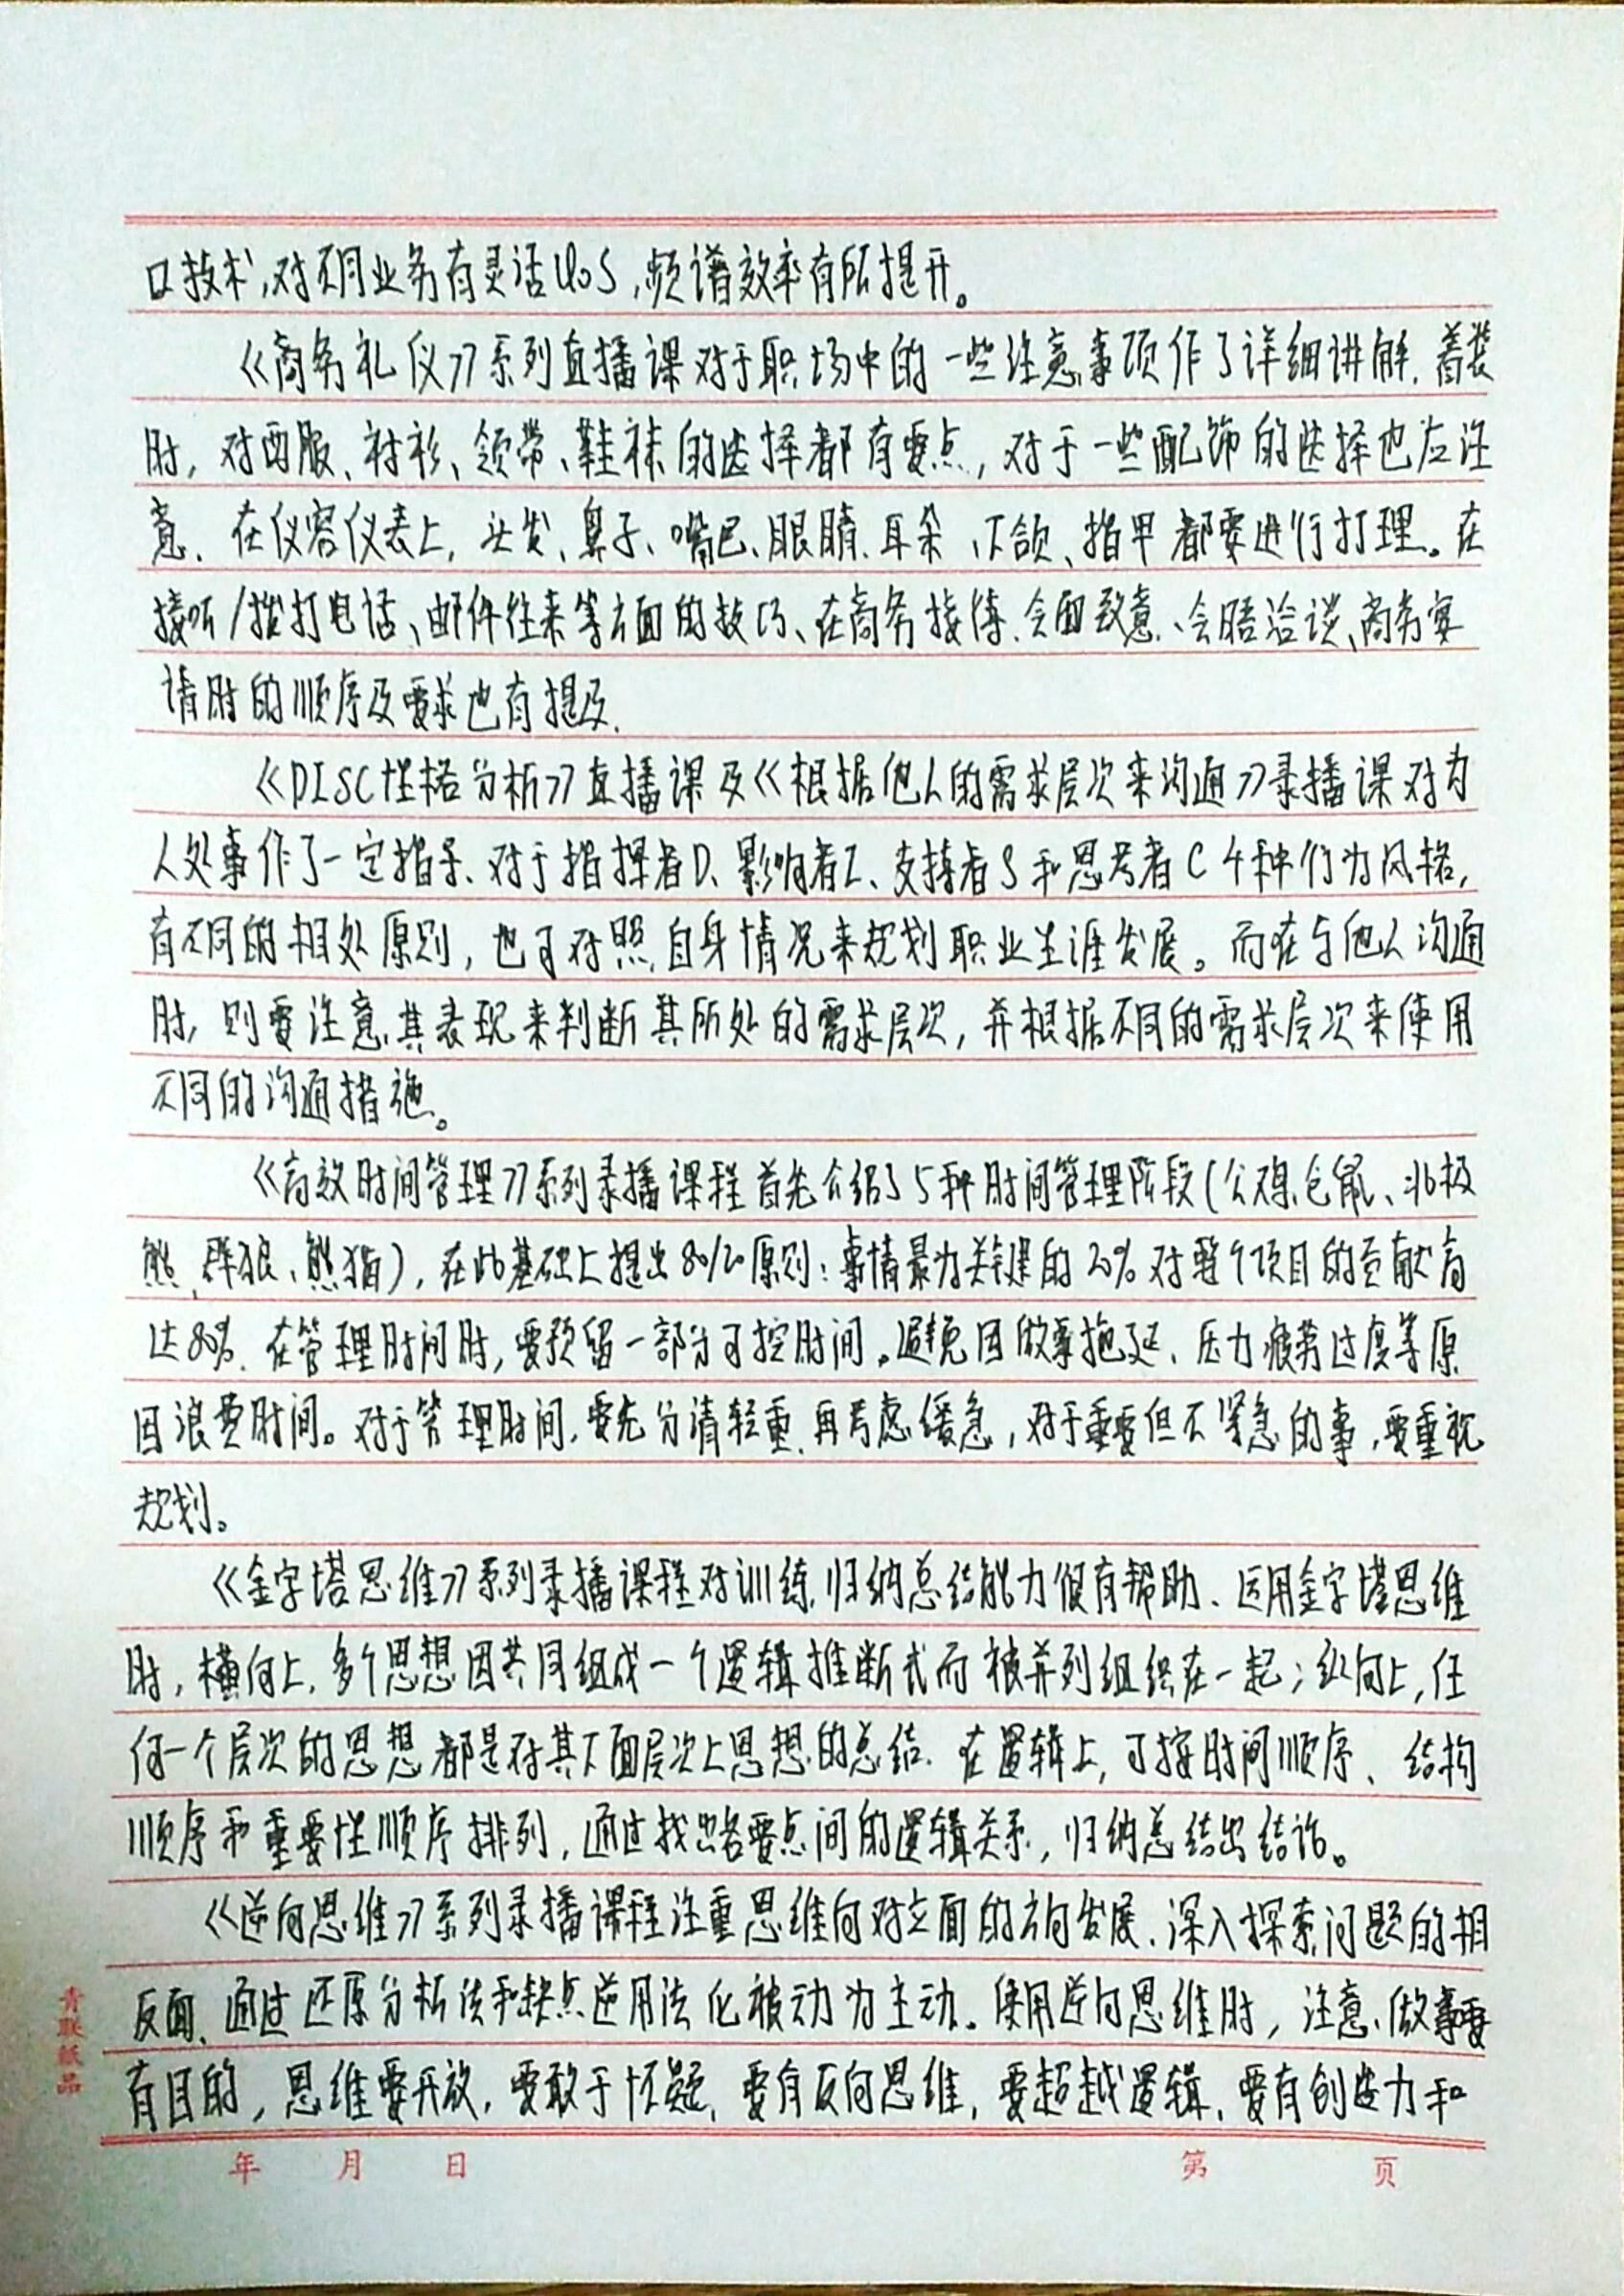 口技术,对不同业务有灵活QoS,频谱效率有所提升。
《商务礼仪》系列直播课对于职场中的一些注意事项作了详细讲解.着装
时,对西服、衬衫、领带、鞋袜的选择都有要点,对于一些配饰的选择也应注
意.在仪容仪表上,头发、鼻子、嘴巴、眼睛.耳朵、下颌、指甲都要进行打理。在
接听/拨打电话、邮件往来等方面的技巧、在商务接待.会面致意、会晤洽谈、商务宴
请时的顺序及要求也有提及.
《DISC性格分析》直播课及《根据他人的需求层次来沟通》录播课对为
人处事作了一定指导、对于指挥者D、影响者I、支持者S和思考者C4种行为风格,
有不同的相处原则,也可对照自身情况来规划职业生涯发展。而在与他人沟通
时,则要注意其表现来判断其所处的需求层次,并根据不同的需求层次来使用
不同的沟通措施。
《高效时间管理》系列录播课程首先介绍了5种时间管理阶段(公鸡、仓鼠、北极
熊、群狼、熊猫),在此基础上提出80/20原则:事情最为关键的20%对整个项目的贡献高
达80%.在管理时间时,要预留一部分可控时间。避免因做事拖延、压力疲劳过度等原
因浪费时间。对于管理时间,要先分清轻重,再考虑缓急,对于重要但不紧急的事,要重视
规划。
《金字塔思维》系列录播课程对训练归纳总结能力很有帮助、运用金字塔思维
时,横向上,多个思想因共同组成一个逻辑推断式而被并列组织在一起;纵向上,任
何一个层次的思想都是对其下面层次上思想的总结.在逻辑上,可按时间顺序、结构
顺序和重要性顺序排列,通过找出各要点间的逻辑关系,归纳总结出结论。
《逆向思维》系列录播课程注重思维向对立面的方向发展.深入探索问题的相
反面、通过还原分析法和缺点逆用法化被动为主动。使用逆向思维时,注意做事要
有目的,思维要开放,要敢于怀疑,要有反向思维,要超越逻辑,要有创造力和
青联纸品
年 月 日 第 页